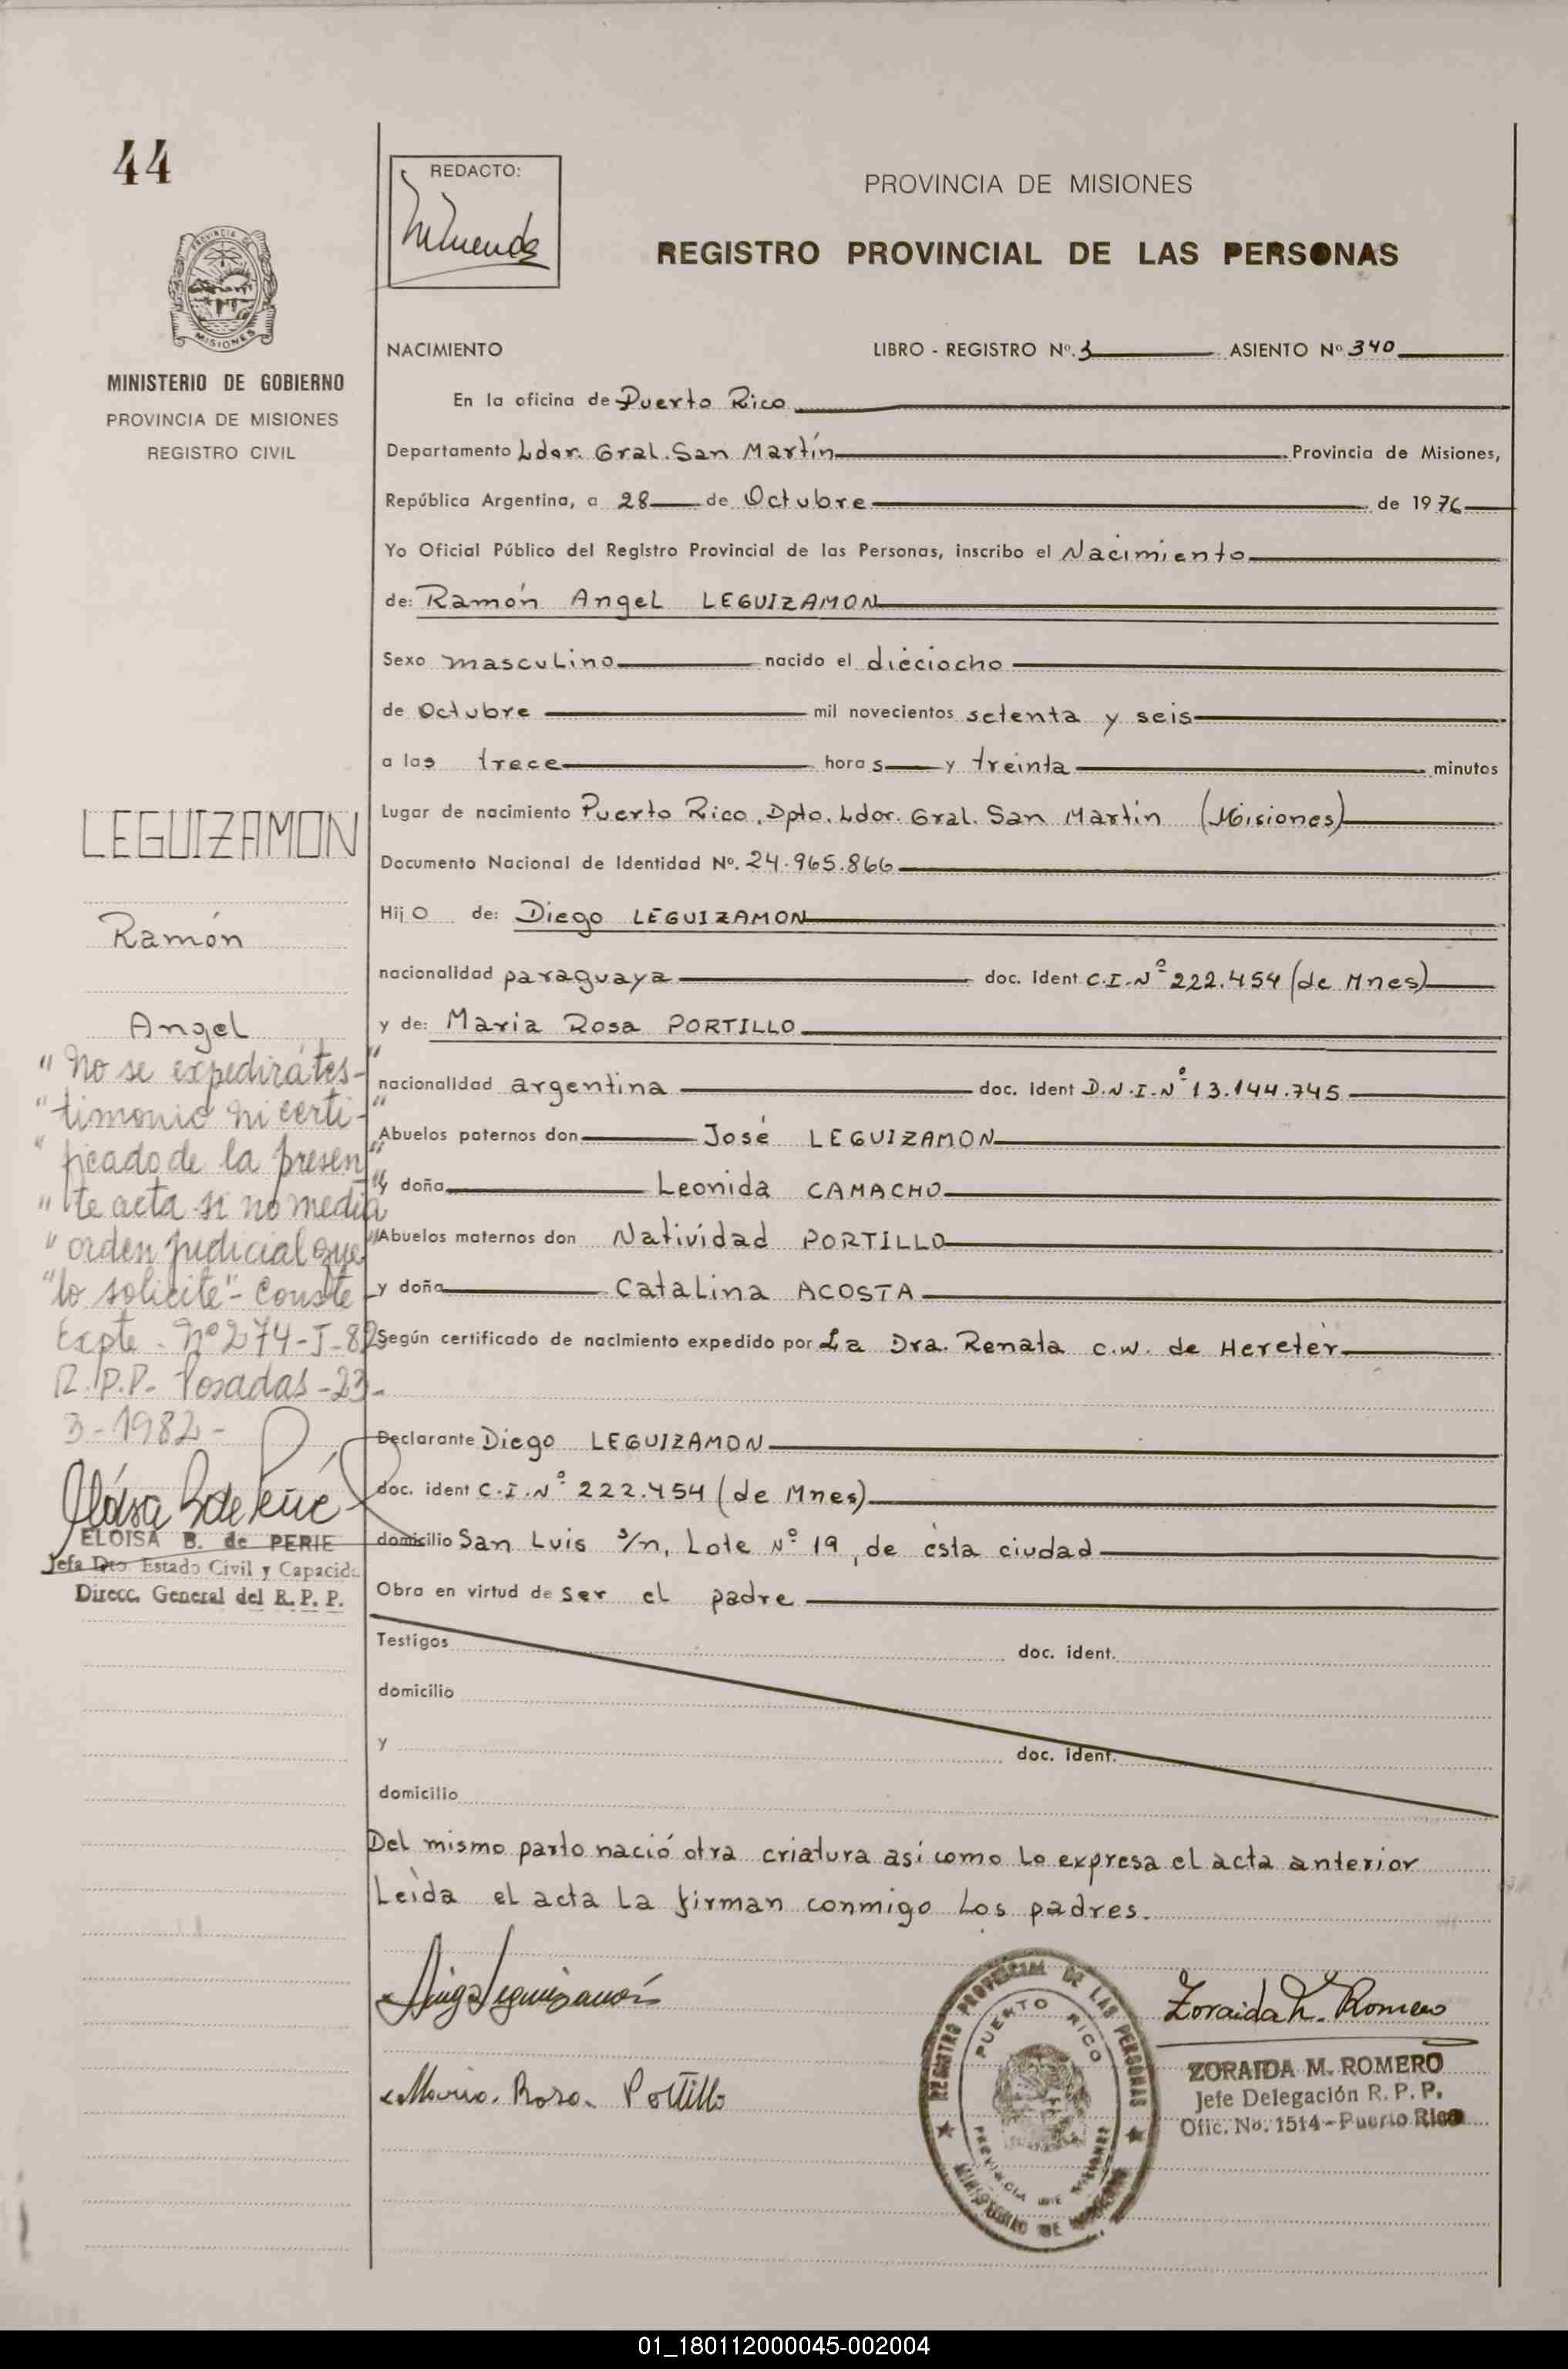 44
REDACTO:
PROVINCIA DE MISIONES
REGISTRO PROVINCIAL DE LAS PERSONAS
PROVINCIA DE
MISIONES
MINISTERIO DE GOBIERNO
PROVINCIA DE MISIONES
REGISTRO CIVIL
NACIMIENTO LIBRO - REGISTRO Nº. 3 ASIENTO Nº 340
En la oficina de Puerto Rico
Departamento Ldor. Gral. San Martín Provincia de Misiones,
República Argentina, a 28 de Octubre de 1976
Yo Oficial Público del Registro Provincial de las Personas, inscribo el Nacimiento
de: Ramón Angel LEGUIZAMON
Sexo masculino nacido el dieciocho
de Octubre mil novecientos setenta y seis
a las trece horas y treinta minutos
Lugar de nacimiento Puerto Rico, Dpto. Ldor. Gral. San Martín (Misiones)
Documento Nacional de Identidad Nº. 24.965.866
Hijo de: Diego LEGUIZAMON
nacionalidad paraguaya doc. ident C.I.Nº 222.454 (de Mnes)
y de: Maria Rosa PORTILLO
nacionalidad argentina doc. ident D.N.I.Nº 13.144.745
Abuelos paternos don José LEGUIZAMON
y doña Leonida CAMACHO
Abuelos maternos don Natividad PORTILLO
y doña Catalina ACOSTA
Según certificado de nacimiento expedido por La Dra. Renata C.W. de Hereter
Declarante Diego LEGUIZAMON
doc. ident C.I.Nº 222.454 (de Mnes)
domicilio San Luis s/n, Lote Nº 19, de ésta ciudad
Obra en virtud de ser el padre
Testigos doc. ident.
domicilio
y doc. ident.
domicilio
Del mismo parto nació otra criatura así como lo expresa el acta anterior
Leída el acta la firman conmigo los padres.
LEGUIZAMON
Ramón
Angel
"No se expedirá tes-"
"timonio ni certi-"
"ficado de la presen"
"te acta si no media"
"orden judicial que"
"lo solicite"- Conste
Expte. Nº 274-J-82
R.P.P. Posadas -23-
3-1982-
ELOISA B. de PERIE
Jefa Dto Estado Civil y Capacid.
Direcc. General del R. P. P.
Diego Leguizamón
Maria Rosa Portillo
REGISTRO PROVINCIAL DE LAS PERSONAS
PUERTO RICO
PROVINCIA DE MISIONES
MINISTERIO DE GOBIERNO
Zoraida M. Romero
ZORAIDA M. ROMERO
Jefe Delegación R. P. P.
Ofic. No. 1514 - Puerto Rico
01_180112000045-002004